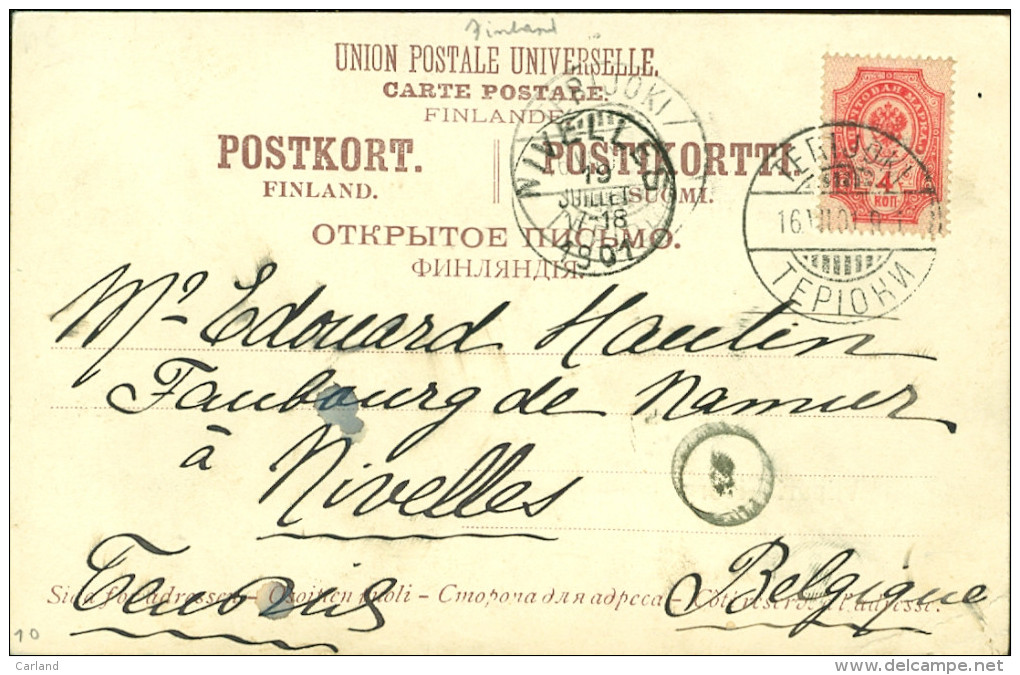 Finland
UNION POSTALE UNIVERSELLE.
CARTE POSTALE.
FINLANDE
POSTKORT. POSTIKORTTI.
FINLAND. SUOMI.
ОТКРЫТОЕ ПИСЬМО.
ФИНЛЯНДІЯ.
ПОЧТОВАЯ МАРКА
4
КОП
TERIJOKI
16.VII.01
ТЕРІОКИ
TERIJOKI
NIVELLES
19
JUILLET
-18
1901
Mr Edouard Hautin
Faubourg de Namur
à
Nivelles
Belgique
Sida för adressen - Osoitteen puoli - Сторона для адреса - Côté réservé à l'adresse.
10
Carland
http://www.delcampe.net